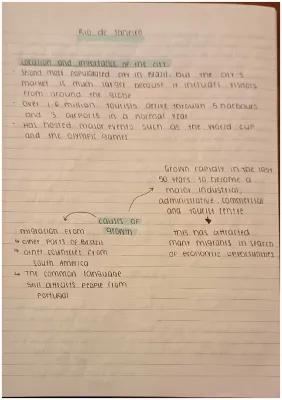 Rio de Janeiro
Location and importance of the city
Second most populated city in Brazil, but the city's
market is much larger because it includes visitors
from around the globe
Over 1.6 million tourists arrive through 5 harbours
and 3 airports in a normal year
Has hosted major events such as the World Cup
and the Olympic games
Grown rapidly in the last
50 years to become a
major industrial,
administrative, commercial
and tourist centre
causes of
growth
this has attracted
many migrants in search
of economic opportunities
migration from
↳ other parts of Brazil
↳ other countries from
South America
↳ The common language
still attracts people from
Portugal